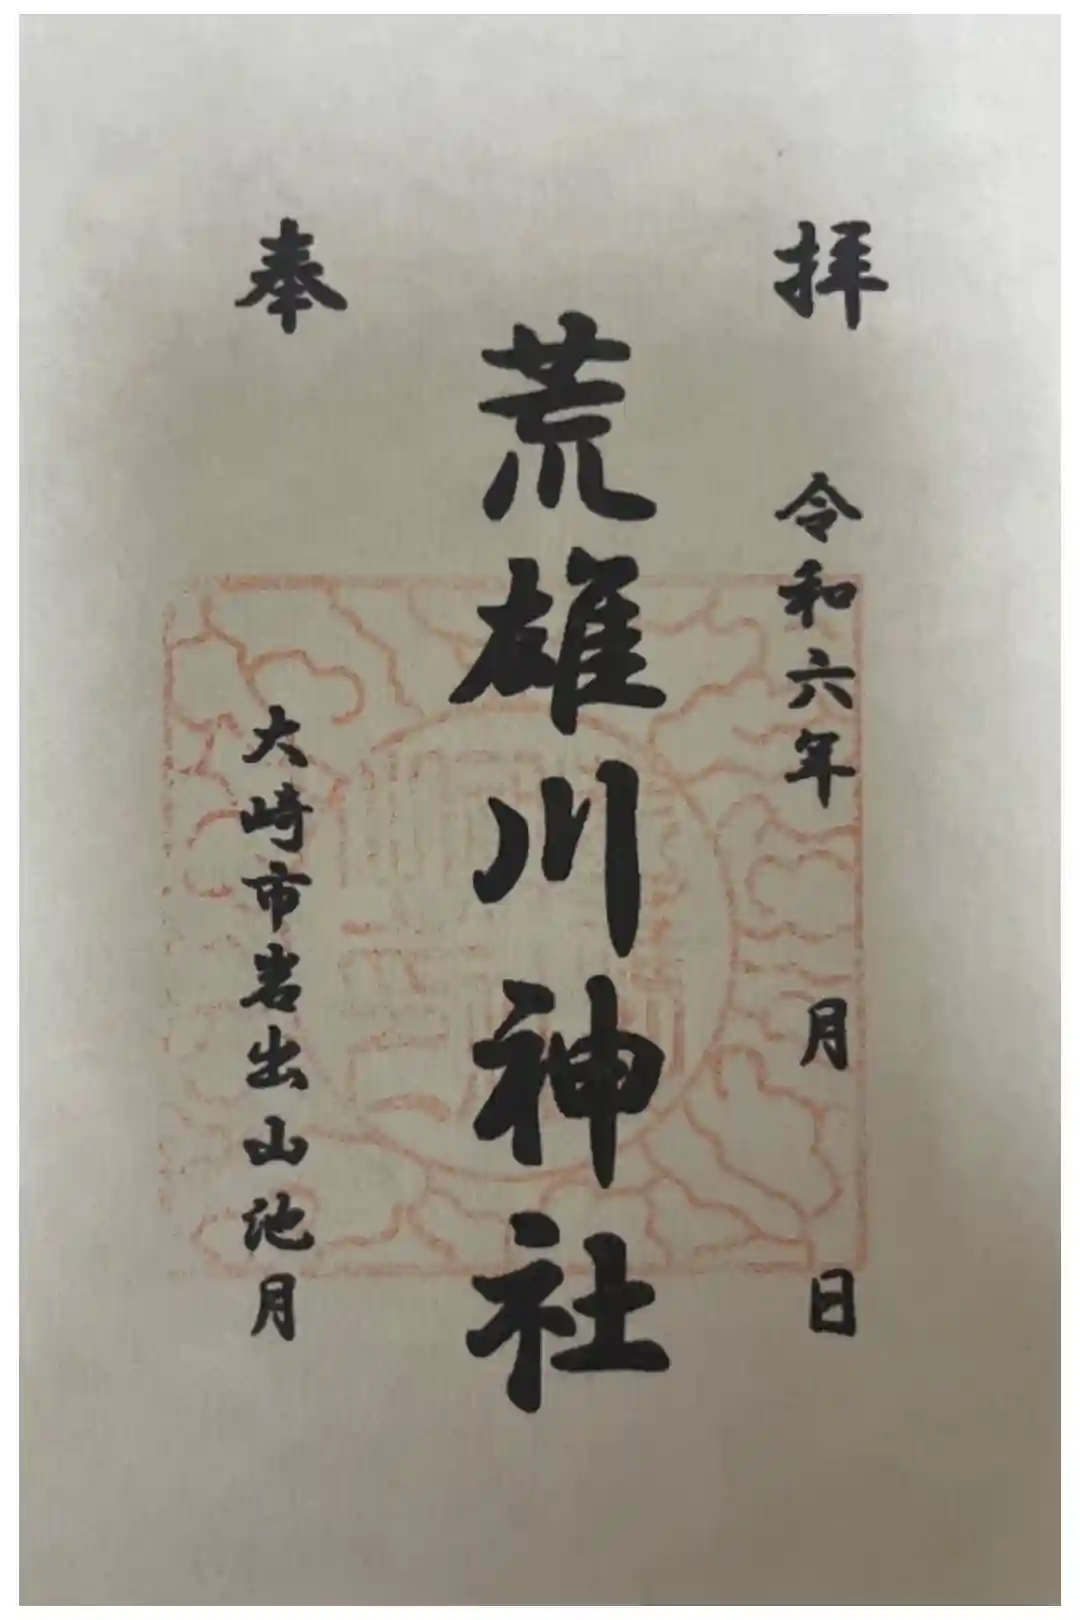 奉拝
令和六年 月 日
荒雄川神社
大崎市岩出山池月